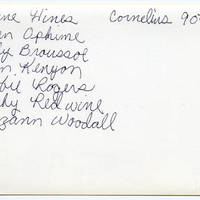 ne Hines Cornelius 90
en Ophime
y Broussor
n. Kenyon
bie Rogers
hy Redwine
zann Woodall